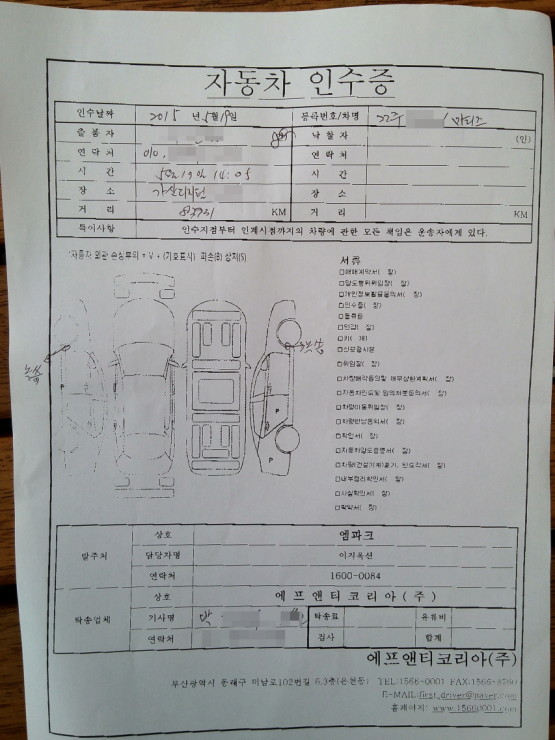 자동차 인수증
인수날짜 2015 년 5월 19일 등록번호/차명 22주 / 마티즈
출품자 낙찰자 (인)
연락처 010. 연락처
시간 5월 19일 14:05 시간
장소 가산디지털 장소
거리 KM 거리 KM
특이사항 인수시점부터 인계시점까지의 차량에 관한 모든 책임은 운송자에게 있다.
*자동차 외관 손상부위 + V + (기호표시) 파손(B) 상처(S)
서류
□매매계약서( 장)
□양도행위위임장( 장)
□개인정보활용동의서( 장)
□인수증( 장)
□등록증
□인감( 장)
□키( 개)
□신분증사본
□위임장( 장)
□자동차인도및 임의처분동의서( 장)
□차량이동위임장( 장)
□차량반납동의서( 장)
□확인서( 장)
□자동차양도증명서( 장)
□내부정리확인서( 장)
□사실확인서( 장)
□확약서( 장)
P
P
P
발주처
상호 엠파크
담당자명 이지옥션
연락처 1600-0084
탁송업체
상호 에프앤티코리아(주)
기사명 탁송료 유류비
연락처 검사 합계
에프앤티코리아(주)
부산광역시 동래구 미남로102번길 6,3층(온천동) TEL:1566-0001 FAX:1566-8760
E-MAIL:first_driver@naver.com
홈페이지: www.15660001.com